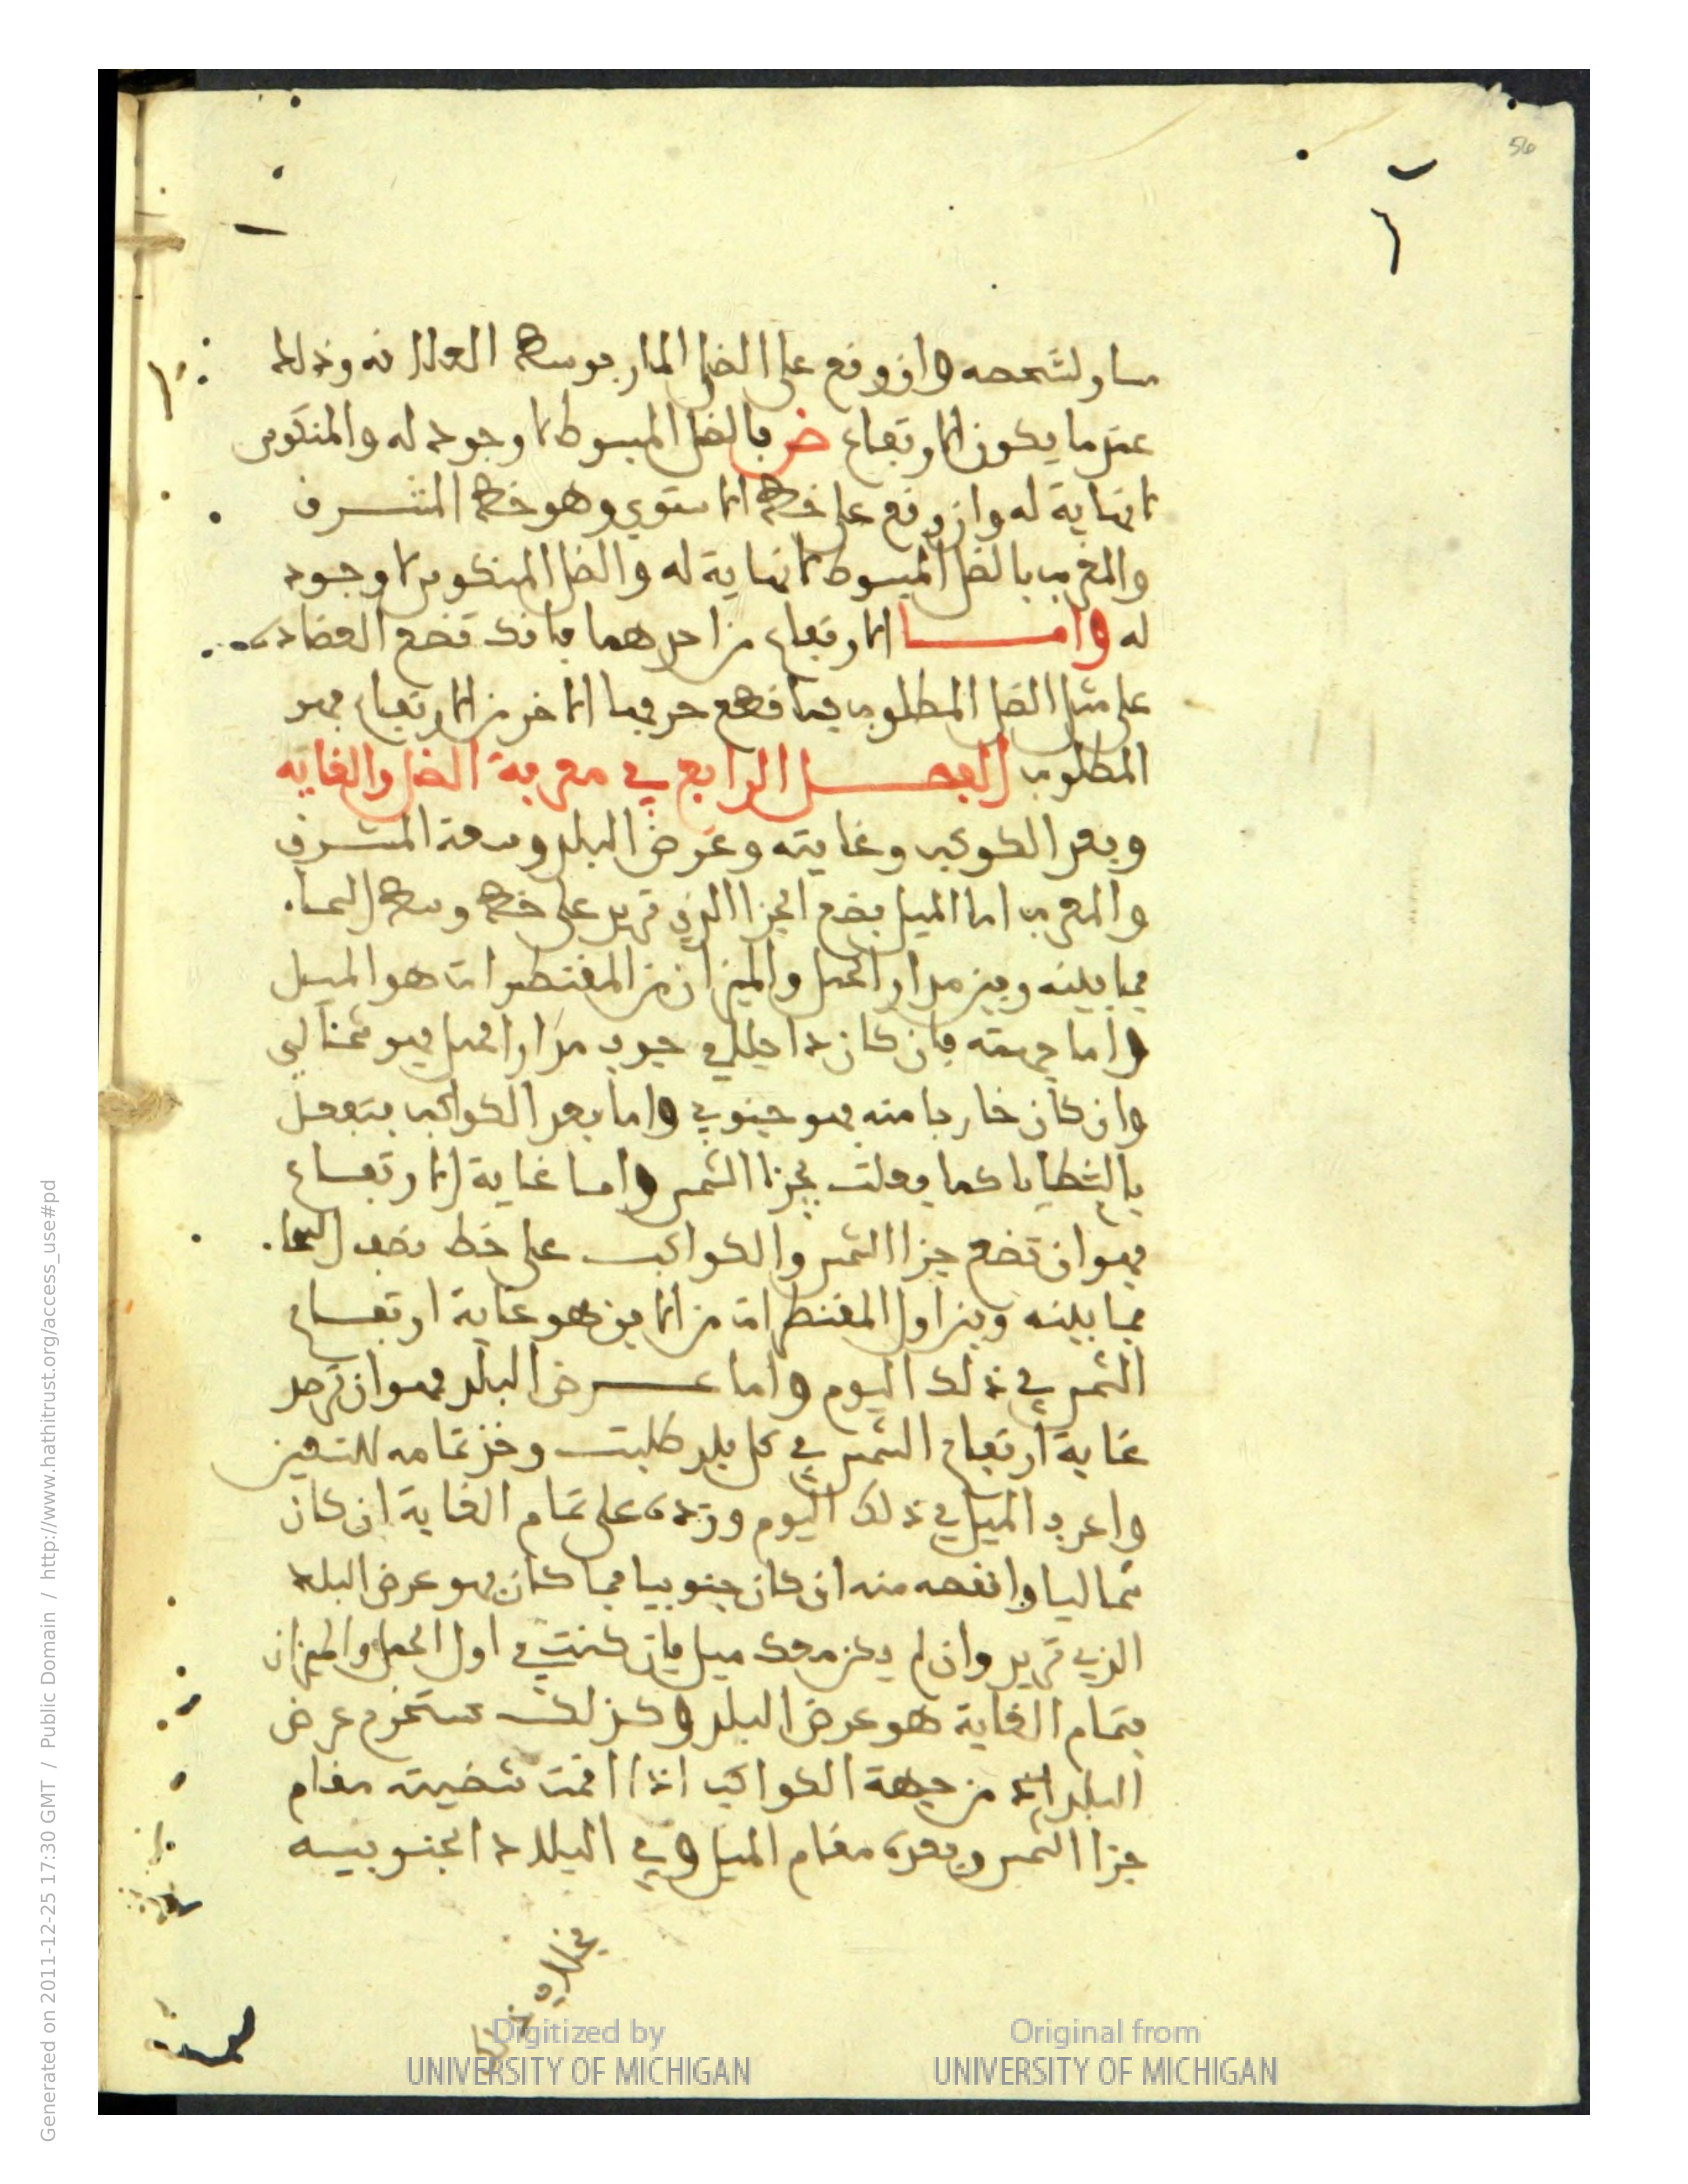 56
مساو لشخصه وان وقع على الضل المار بوسط العلاقه وذلك
عندما يكون الارتفاع ض فالضل المبسوط لا وجود له والمنكوس
لا نهاية له وان وقع على خط الاستوي وهو خط المشرق
والمغرب فالضل المبسوط لا نهاية له والضل المنكوس لا وجود
له واما الارتفاع من احدهما فانك تضع العضادة
على مثل الضل المطلوب فما قطع حرفها الاخر من الارتفاع فهو
المطلوب الفصل الرابع في معرفة الضل والغايه
وبعد الكوكب وغايته وعرض البلد وسعة المشرق
والمغرب اما الميل فضع الجزا الذي تريد على خط وسط السما
فما بينه وبين مدار الحمل والميزان من المقنطرات هو الميل
واما جهته فان كان داخل في جوف مدار الحمل فهو شمالي
وان كان خارجا منه فهو جنوبي واما بعد الكواكب فتفعل
بالشظايا كما فعلت بجزا الشمس واما غاية الارتفاع
فهو ان تضع جزا الشمس والكواكب على خط نصف السما
فما بينه وبين اول المقنطرات من الافق هو غاية ارتفاع
الشمس في ذلك اليوم واما عرض البلد فهو ان ترصد
غاية ارتفاع الشمس في كل بلد طلبت وخذ تمامه للتسعين
واعرف الميل في ذلك اليوم وزده على تمام الغاية ان كان
شماليا وانقصه منه ان كان جنوبيا فما كان فهو عرض البلد
الذي تريد وان لم يكن معك ميل فان كنت في اول الحمل والميزان
فتمام الغاية هو عرض البلد وكذلك تستخرج عرض
البلد من جهة الكواكب اذا اقمت شضيته مقام
جزا الشمس وبعده مقام الميل وفي البلاد الجنوبيه
Generated on 2011-12-25 17:30 GMT / http://www.hathitrust.org/access_use#pd
Public Domain / http://www.hathitrust.org/access_use#pd
Digitized by UNIVERSITY OF MICHIGAN
Original from UNIVERSITY OF MICHIGAN